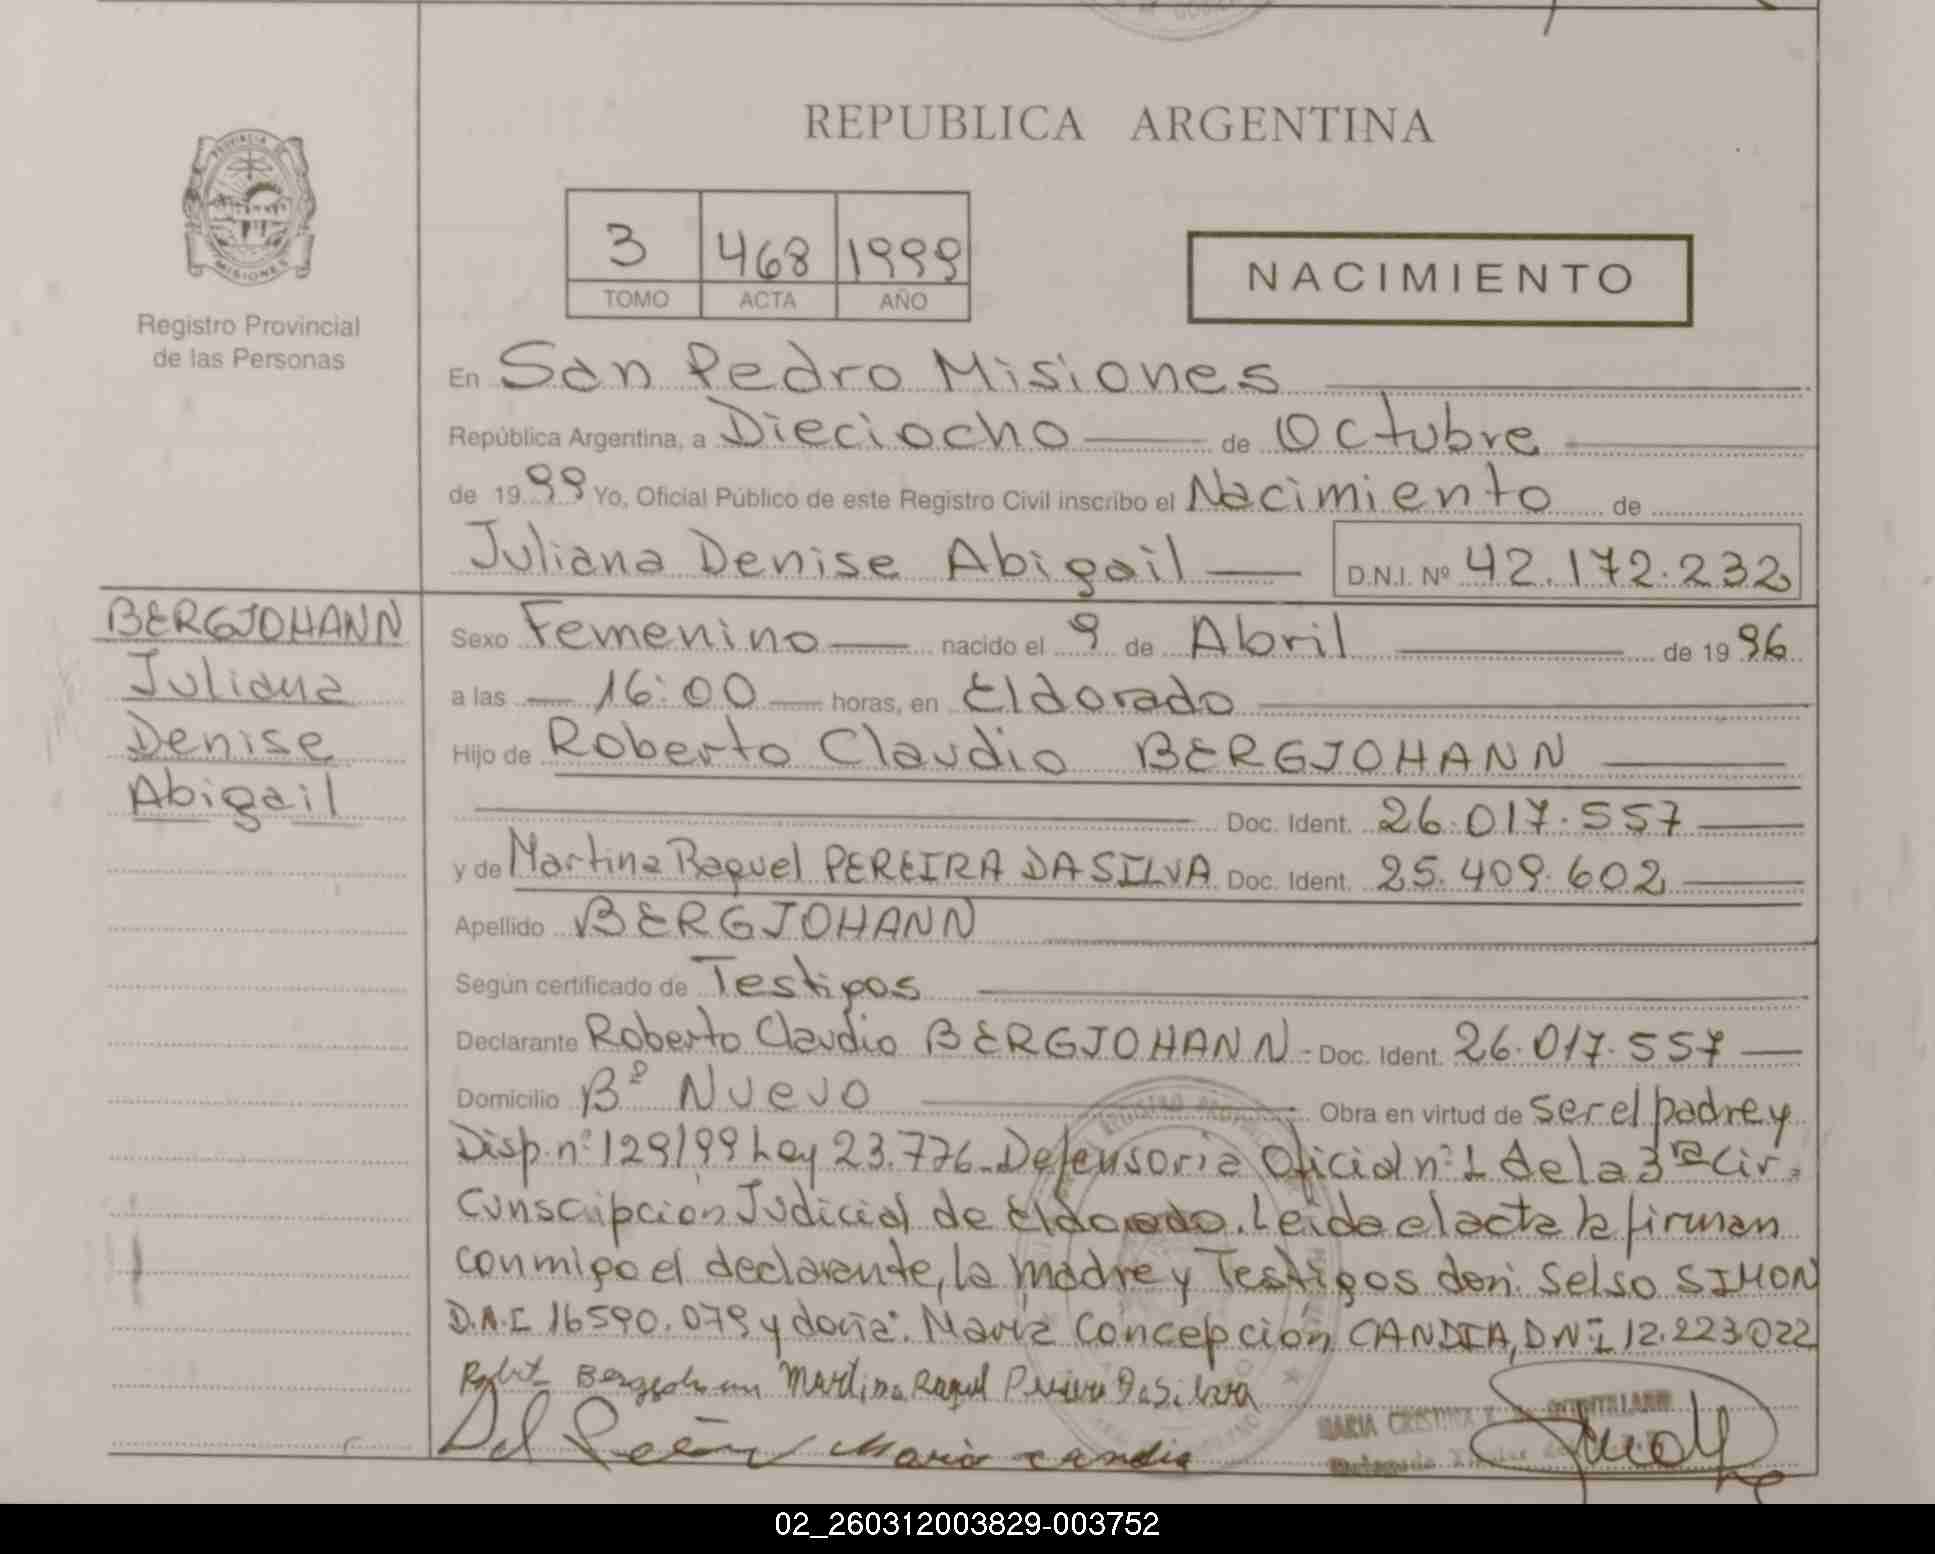 REPUBLICA ARGENTINA
PROVINCIA
MISIONES
Registro Provincial
de las Personas
3 468 1999
TOMO ACTA AÑO
NACIMIENTO
En San Pedro Misiones
República Argentina, a Dieciocho de Octubre
de 1999 Yo, Oficial Público de este Registro Civil inscribo el Nacimiento de
Juliana Denise Abigail D.N.I. Nº 42.172.232
BERGJOHANN
Juliana
Denise
Abigail
Sexo Femenino nacido el 9 de Abril de 1996
a las 16:00 horas, en Eldorado
Hijo de Roberto Claudio BERGJOHANN
Doc. Ident. 26.017.557
y de Martina Raquel PEREIRA DASILVA Doc. Ident. 25.409.602
Apellido BERGJOHANN
Según certificado de Testigos
Declarante Roberto Claudio BERGJOHANN - Doc. Ident. 26.017.557
Domicilio Bº Nuevo Obra en virtud de ser el padre y
Disp. nº 129/99 Ley 23.776 - Defensoria Oficial nº 1 de la 3ra Cir-
cunscripcion Judicial de Eldorado. Leida el acta la firman
conmigo el declarante, la madre y Testigos don: Selso SIMON
D.N.I 16590.079 y doña: Maria Concepcion CANDIA, DNI 12.223022
Bergjohann Martina Raquel Pereira Da Silva
Maria Candia
MARIA CRISTINA
02_260312003829-003752